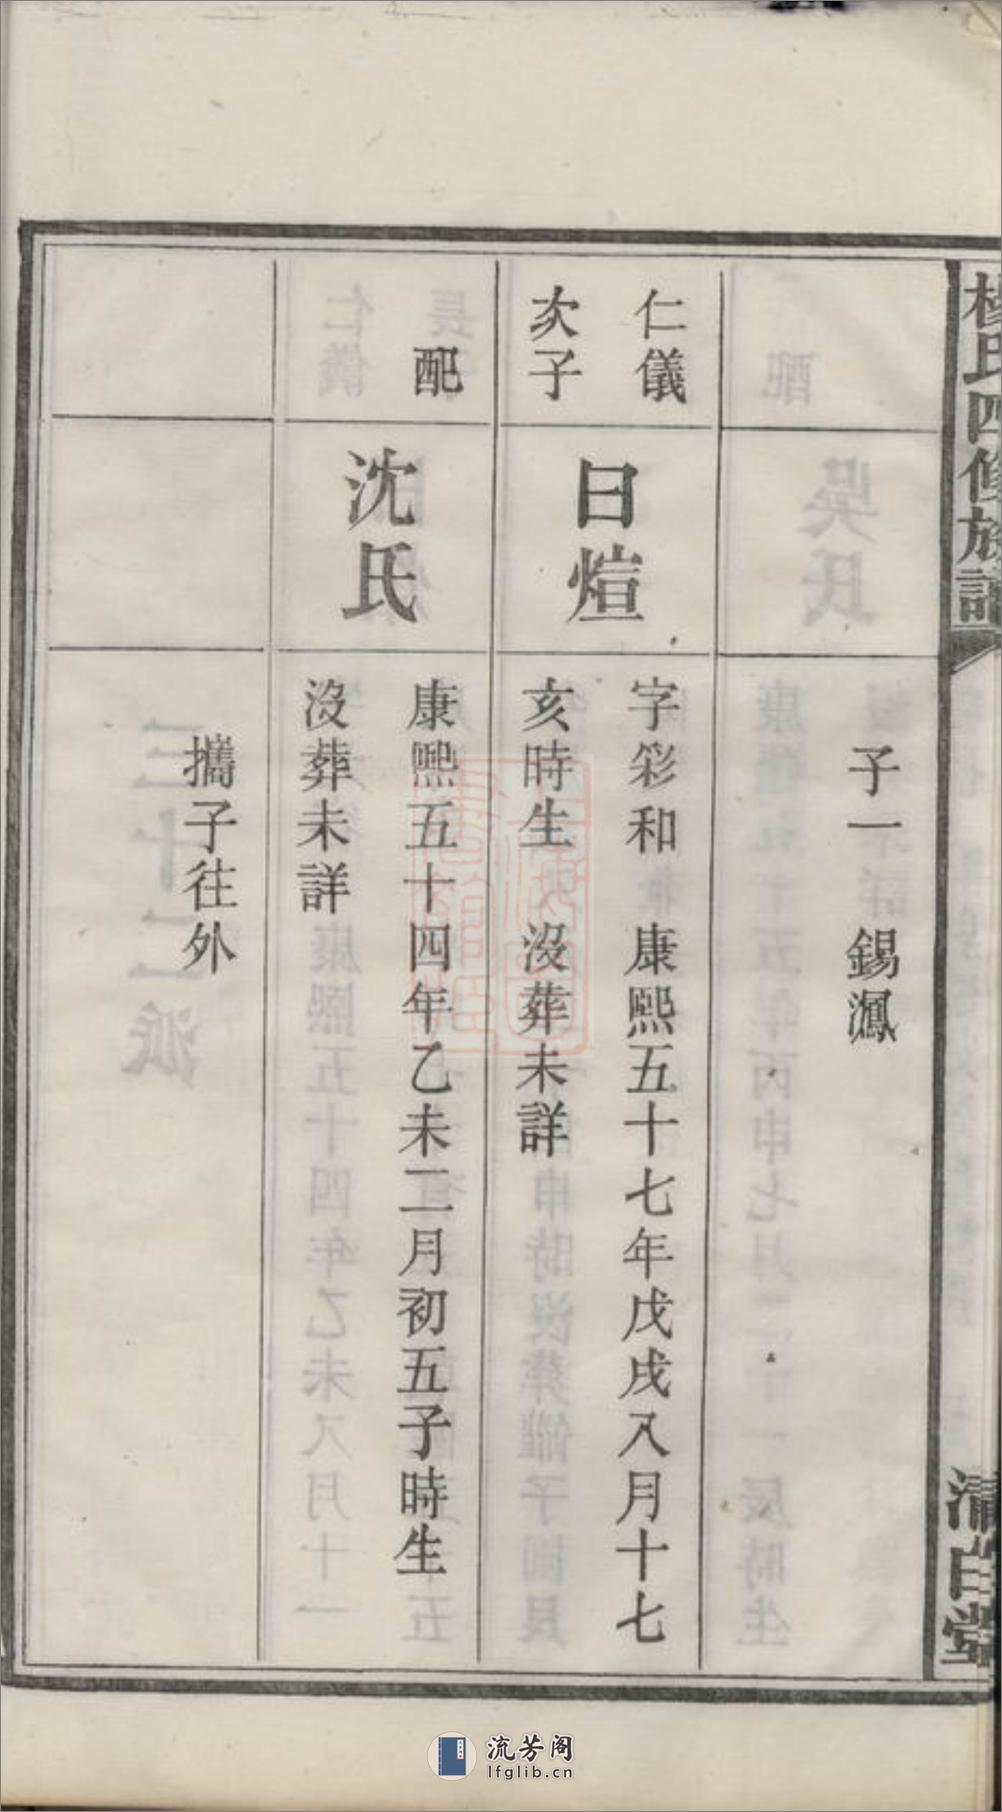 楊氏四修族譜
清白堂
子一 錫鳳
仁儀
次子
曰煊
字彩和 康熙五十七年戊戌八月十七
亥時生 沒葬未詳
配
沈氏
康熙五十四年乙未二月初五子時生
沒葬未詳
攜子往外
流芳阁
lfglib.cn